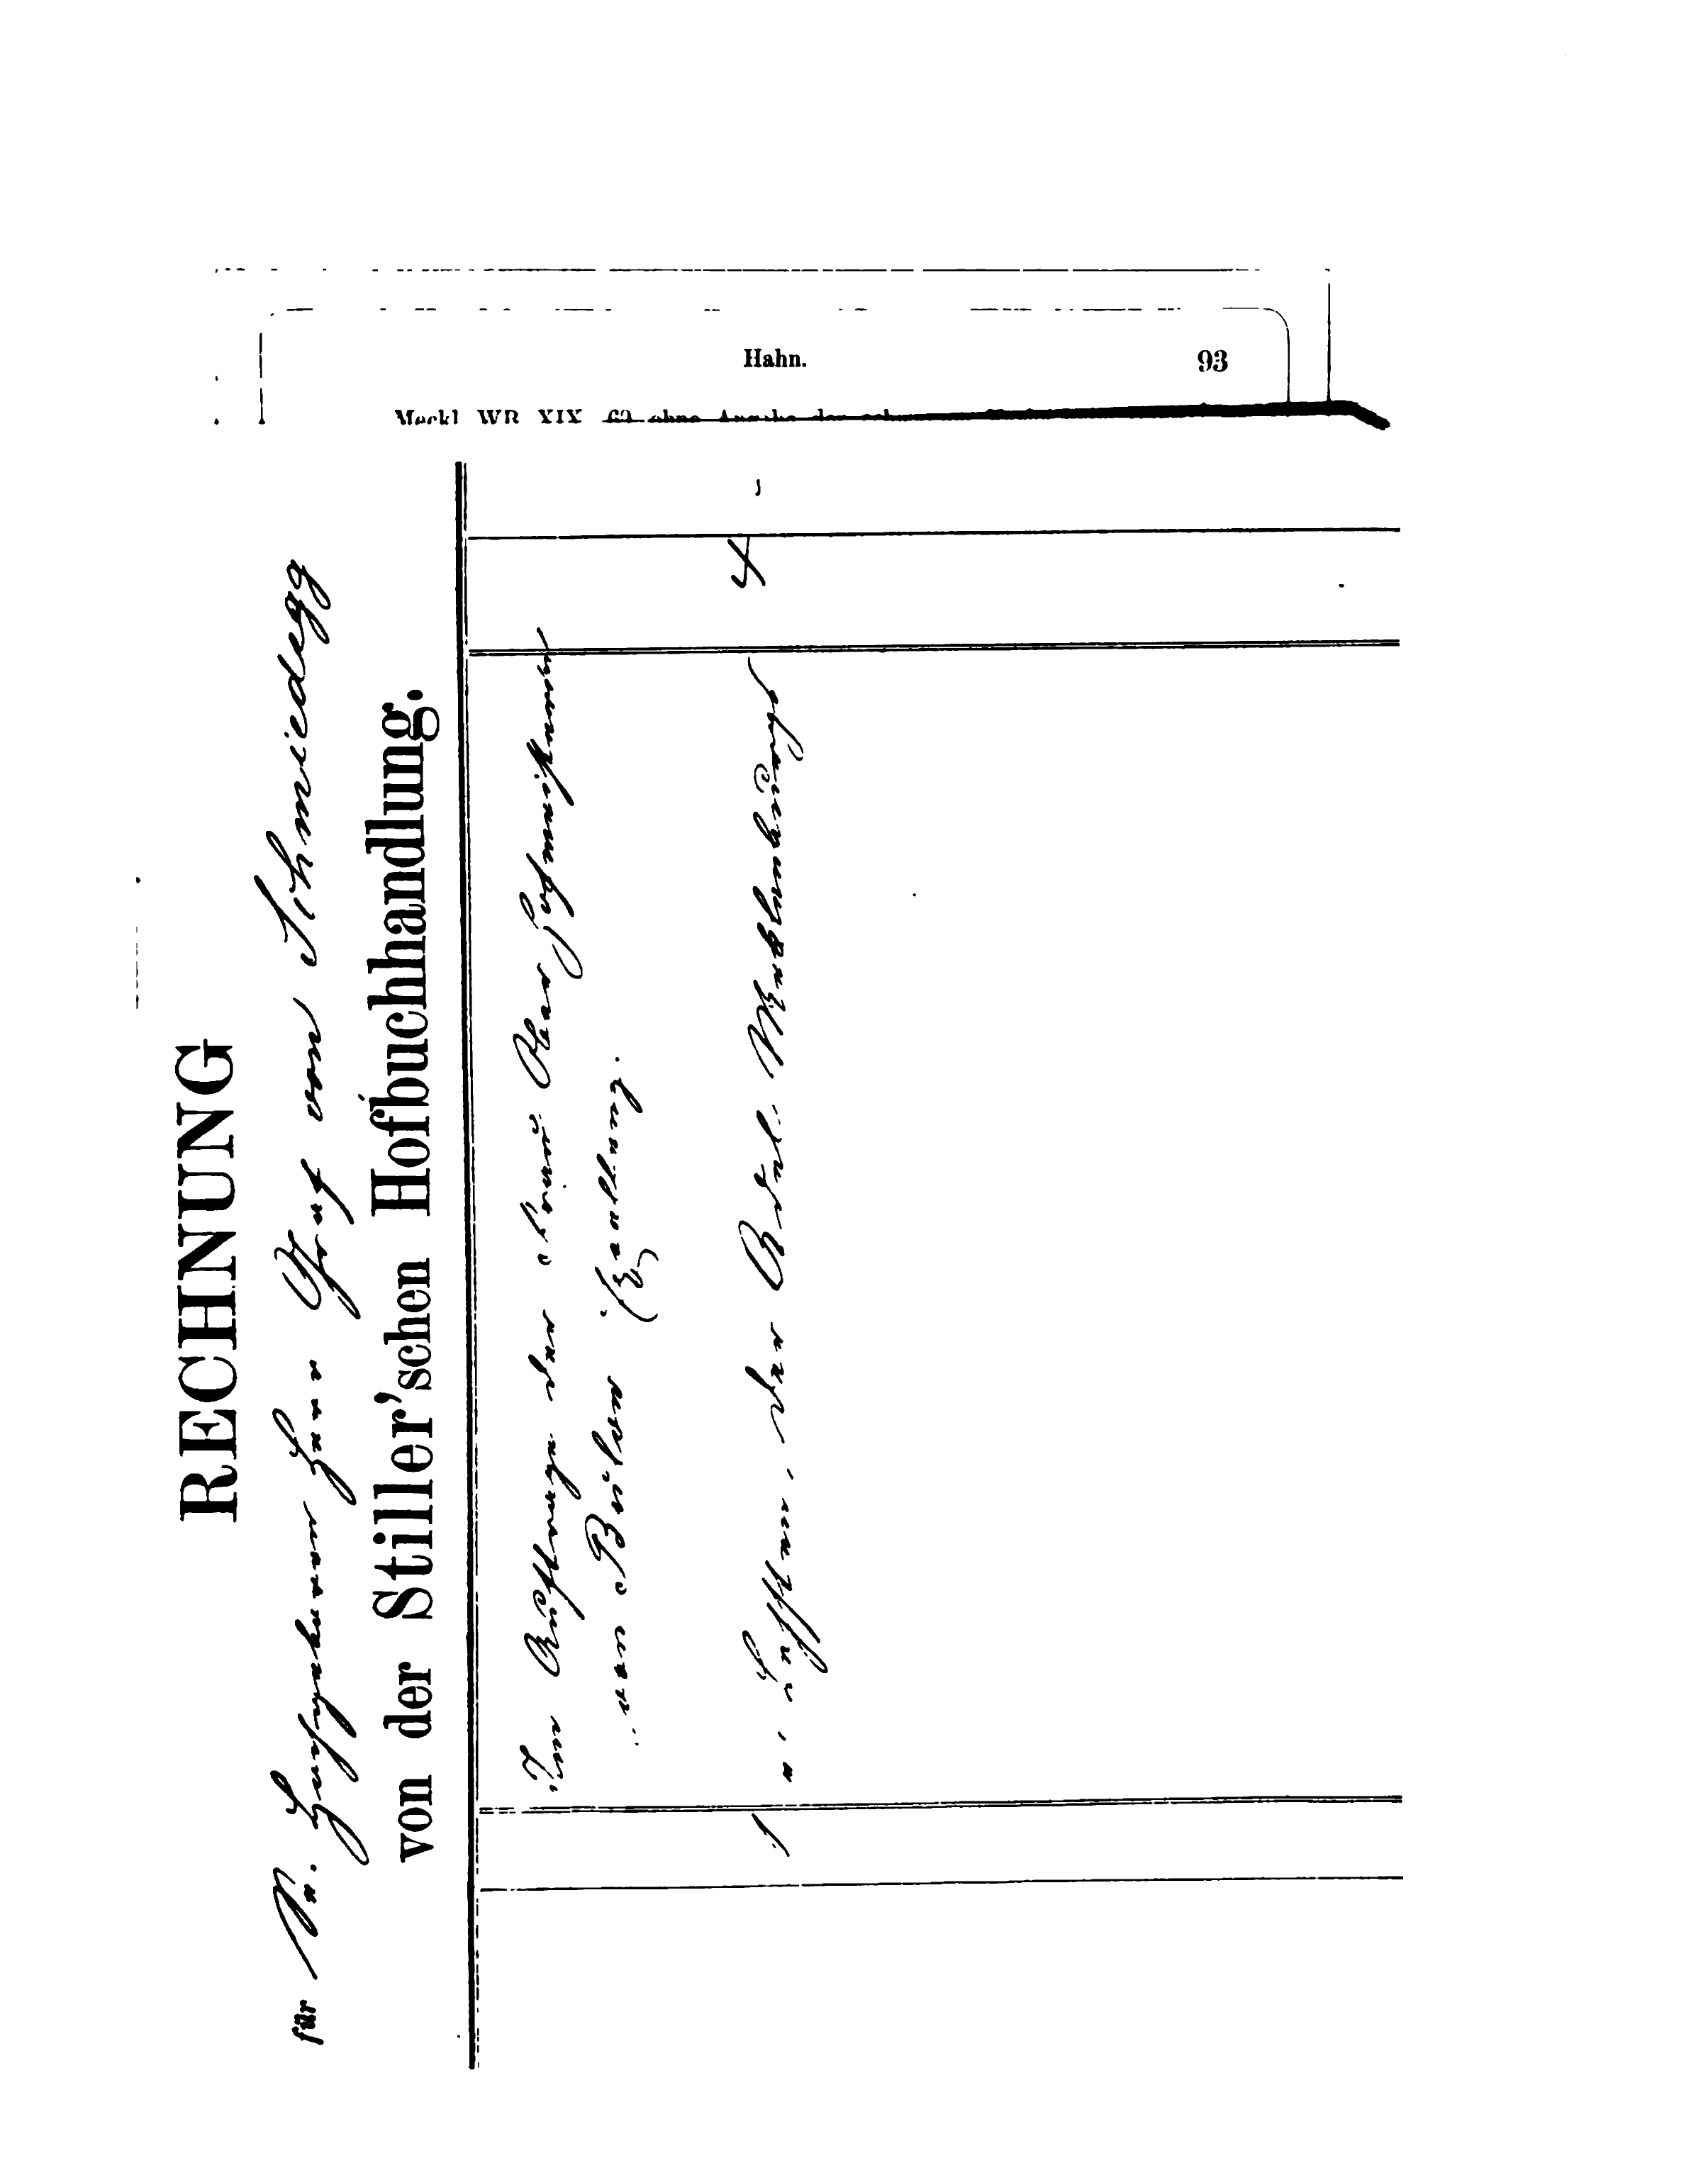 Hahn. 93
Meckl WR XIX 69 ohne Angabe der
RECHNUNG
für Sr. Hochgeboren Herr Graf von Schmiedegg
von der Stiller'schen Hofbuchhandlung.
Im Auftrage der Frau Ober Hofmeisterin
von Bülow Excellenz.
1 v. Lehsten, der Adel Mecklenburgs 4